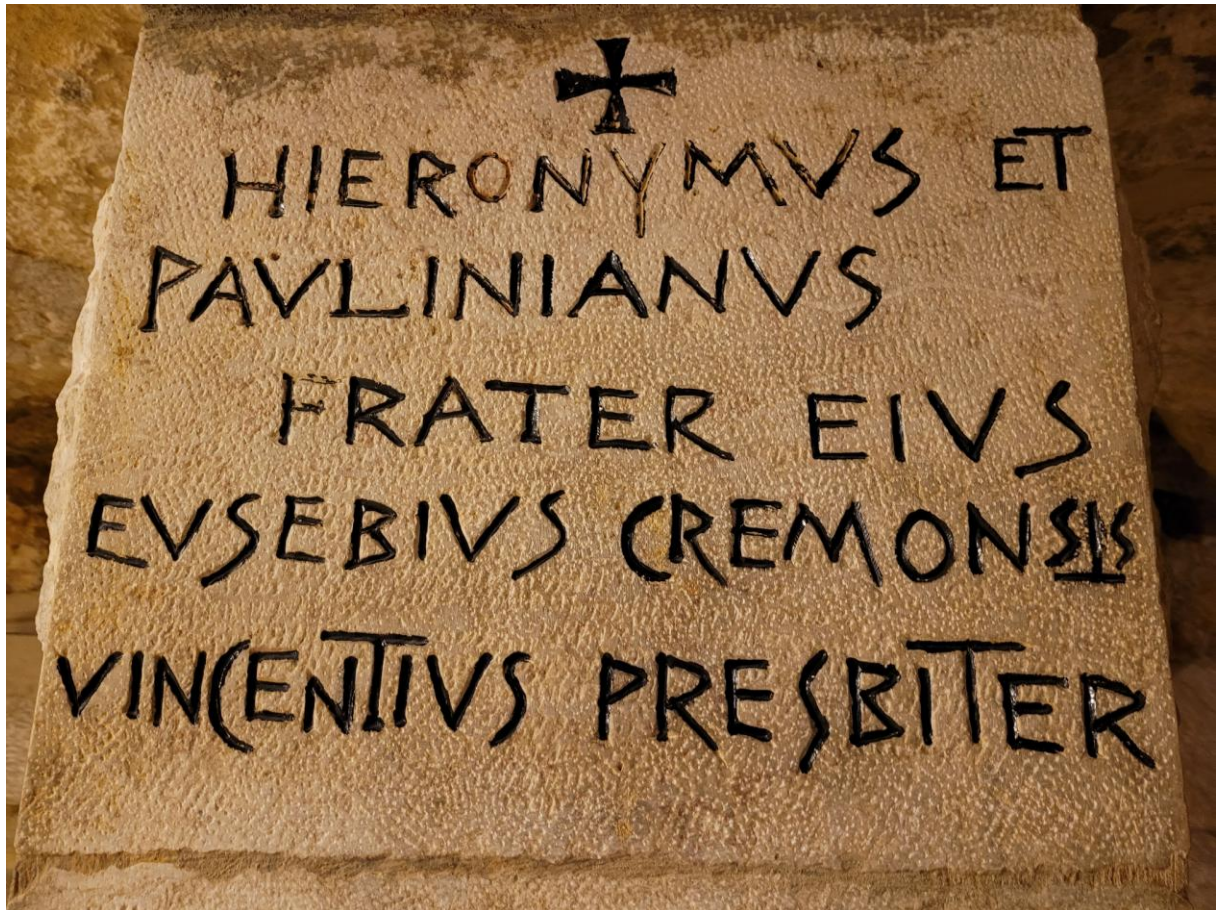 HIERONYMVS ET
PAVLINIANVS
FRATER EIVS
EVSEBIVS CREMONSIS
VINCENTIVS PRESBITER